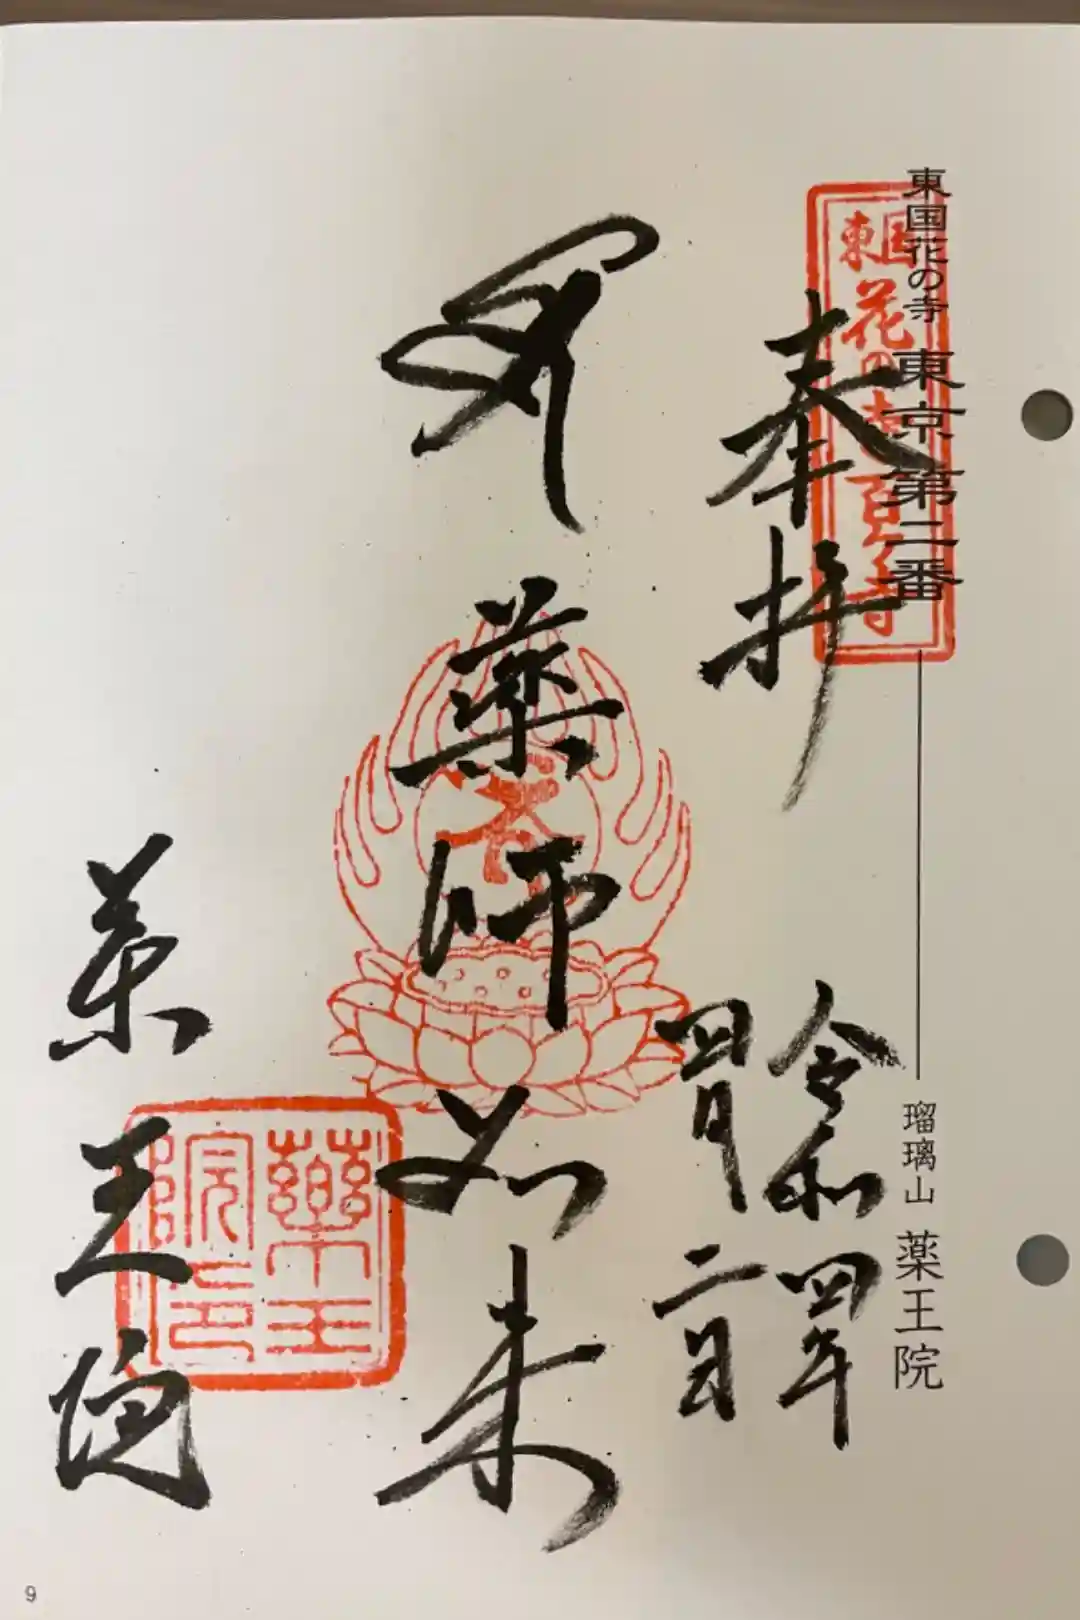 東国花の寺 東京 第二番
瑠璃山 薬王院
東国
花の寺百ヶ寺
奉拝
令和四年
四月二日
薬師如来
薬王院
薬王
院印
9